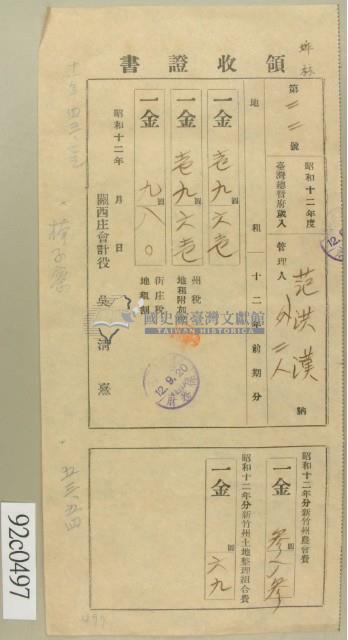 領收證書
第二二號
昭和十二年度
臺灣總督府歲入
管理人
范洪漢
外二人
納
地租十二年前期分
一金 壱九六壱
圓
一金 壱九六壱
圓
州稅
地租附加
一金 九八〇
圓
街庄稅
地租割
昭和十二年 月 日
關西庄會計役 吳 清 熹
12.9.20
國史館臺灣文獻館
TAIWAN HISTORICA
昭和十二年分新竹州農會費
一金
圓
昭和十二年分新竹州土地整理組合費
一金 六九
圓
92c0497
497